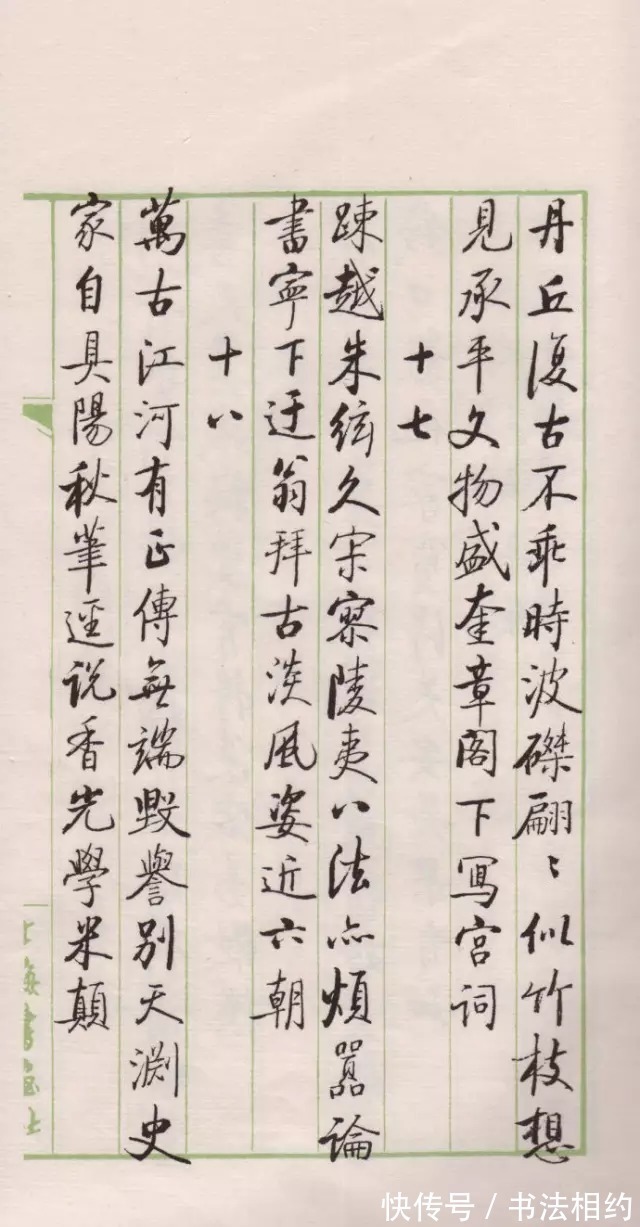 丹丘復古不乖時波磔翩〻似竹枝想
見承平文物盛奎章閣下寫宮詞
十七
疎越朱絃久寂寥陵夷八法亦煩囂論
書寧下迂翁拜古淡風姿近六朝
十八
萬古江河有正傳無端毀譽別天淵史
家自具陽秋筆逕說香光學米顛
上海書畫社
快传号／书法相约